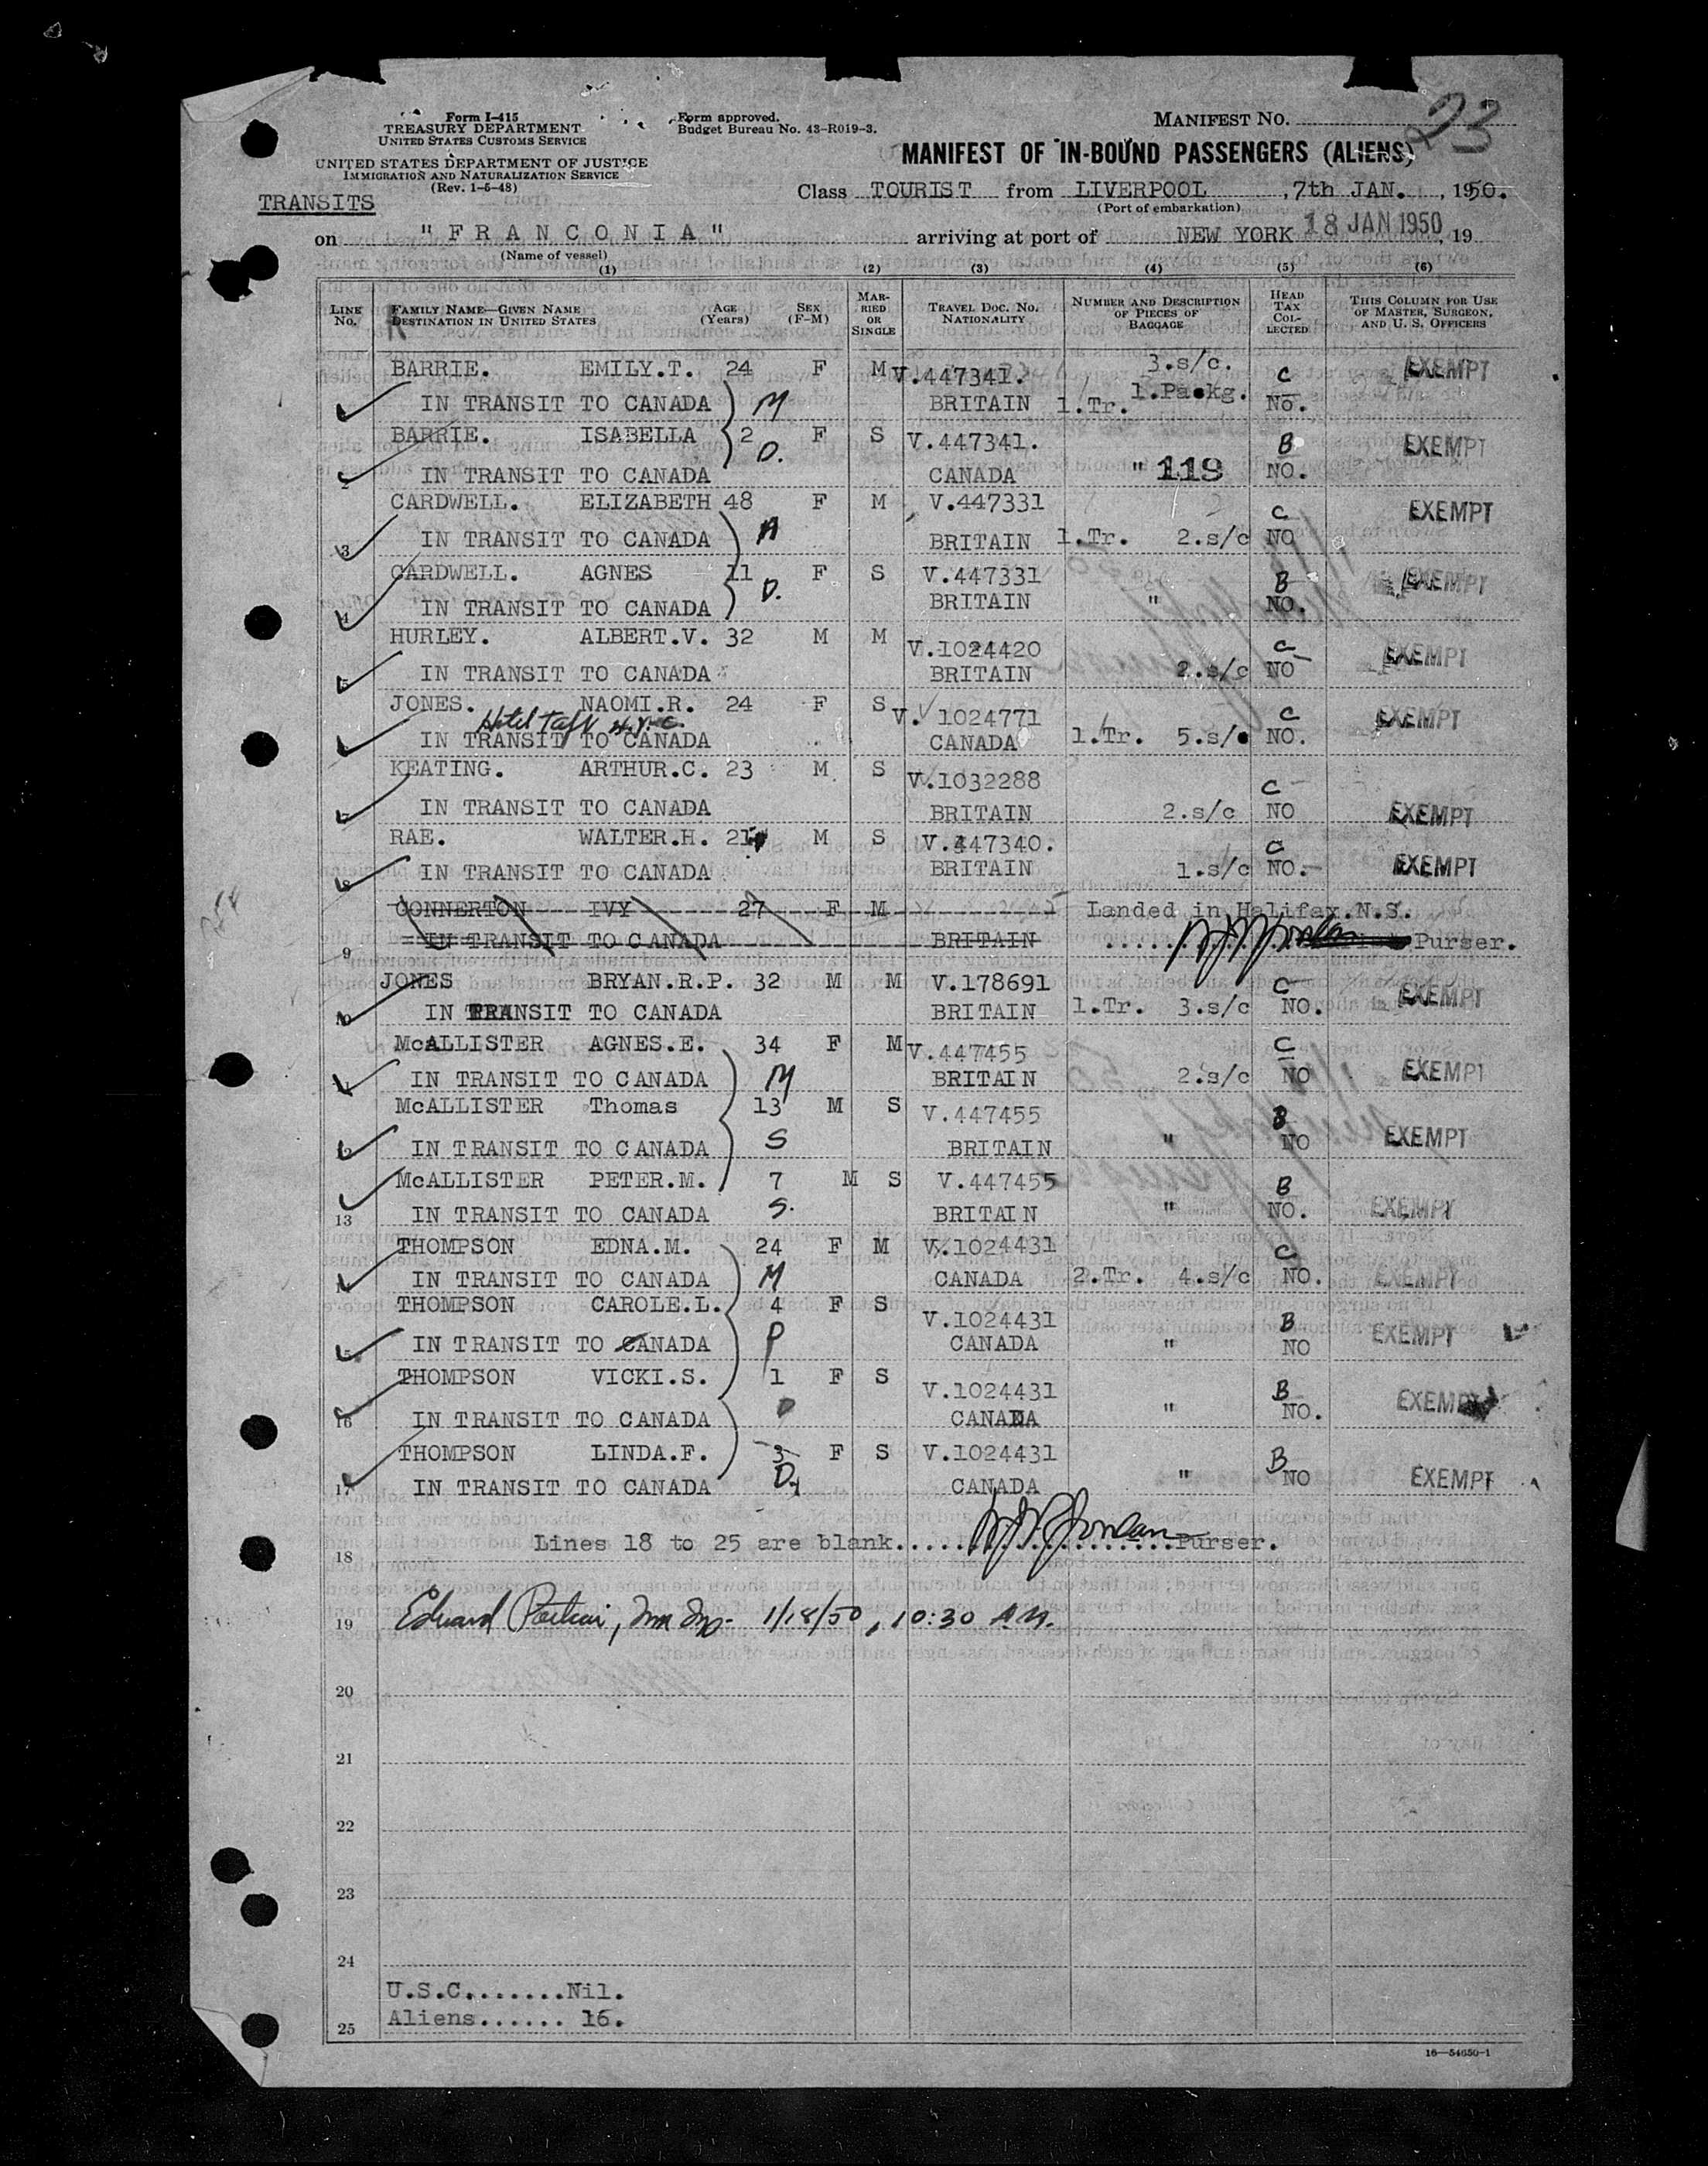 23
Form I-415
TREASURY DEPARTMENT
UNITED STATES CUSTOMS SERVICE
UNITED STATES DEPARTMENT OF JUSTICE
IMMIGRATION AND NATURALIZATION SERVICE
(Rev. 1-6-48)
TRANSITS
Form approved.
Budget Bureau No. 43-R019-3.
MANIFEST NO.
MANIFEST OF IN-BOUND PASSENGERS (ALIENS)
Class TOURIST from LIVERPOOL , 7th JAN. , 1950.
(Port of embarkation)
on "FRANCONIA" arriving at port of NEW YORK 18 JAN 1950, 19
(Name of vessel)
(1) (2) (3) (4) (5) (6)
LINE No. FAMILY NAME—GIVEN NAME DESTINATION IN UNITED STATES AGE (Years) SEX (F-M) MARRIED OR SINGLE TRAVEL DOC. NO. NATIONALITY NUMBER AND DESCRIPTION OF PIECES OF BAGGAGE HEAD TAX COLLECTED THIS COLUMN FOR USE OF MASTER, SURGEON, AND U. S. OFFICERS
BARRIE. EMILY.T. 24 F M V.447341. 3.s/c. C EXEMPT
IN TRANSIT TO CANADA M BRITAIN 1.Tr. 1.Pa kg. No.
BARRIE. ISABELLA 2 F S V.447341. B EXEMPT
IN TRANSIT TO CANADA D. CANADA " 119 NO.
CARDWELL. ELIZABETH 48 F M V.447331 C EXEMPT
3 IN TRANSIT TO CANADA BRITAIN 1.Tr. 2.s/c NO
CARDWELL. AGNES 11 F S V.447331 B EXEMPT
4 IN TRANSIT TO CANADA D. BRITAIN " NO.
HURLEY. ALBERT.V. 32 M M V.1024420 C EXEMPT
5 IN TRANSIT TO CANADA BRITAIN 2.s/c NO
JONES. NAOMI.R. 24 F S V. 1024771 C EXEMPT
Hotel Taft N.Y.C.
IN TRANSIT TO CANADA CANADA 1.Tr. 5.s/ NO.
KEATING. ARTHUR.C. 23 M S V.1032288 C
IN TRANSIT TO CANADA BRITAIN 2.s/c NO EXEMPT
RAE. WALTER.H. 21 M S V.447340. C
8 IN TRANSIT TO CANADA BRITAIN 1.s/c NO. EXEMPT
CONNERTON IVY 27 F M Landed in Halifax.N.S.
9 IN TRANSIT TO CANADA BRITAIN Purser.
JONES BRYAN.R.P. 32 M M V.178691 C EXEMPT
10 IN TRANSIT TO CANADA BRITAIN 1.Tr. 3.s/c NO.
McALLISTER AGNES.E. 34 F M V.447455 C EXEMPT
IN TRANSIT TO CANADA M BRITAIN 2.s/c NO
McALLISTER Thomas 13 M S V.447455 B EXEMPT
IN TRANSIT TO CANADA S BRITAIN " NO
McALLISTER PETER.M. 7 M S V.447455 B
13 IN TRANSIT TO CANADA S. BRITAIN " NO. EXEMPT
THOMPSON EDNA.M. 24 F M V.1024431 C
IN TRANSIT TO CANADA M CANADA 2.Tr. 4.s/c NO. EXEMPT
THOMPSON CAROLE.L. 4 F S V.1024431 B
IN TRANSIT TO CANADA D CANADA " NO EXEMPT
THOMPSON VICKI.S. 1 F S V.1024431 B EXEMPT
16 IN TRANSIT TO CANADA D CANADA " NO.
THOMPSON LINDA.F. 3 F S V.1024431 B
17 IN TRANSIT TO CANADA D. CANADA " NO EXEMPT
18 Lines 18 to 25 are blank. Purser.
19 Edward 1/18/50, 10:30 A.M.
20
21
22
23
24
U.S.C.......Nil.
25 Aliens...... 16.
16—54650-1